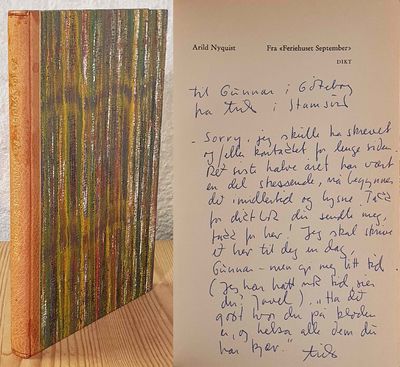 Arild Nyquist Fra «Feriehuset September»
DIKT
til Gunnar i Göteborg
fra Arild i Stamsund
- Sorry, jeg skulle ha skrevet
og/eller kontaktet for lenge siden.
Det siste halve året har vært
en del stressende, nå begynner
det imidlertid og lysne. Takk
for diktet du sendte meg,
takk for her! Jeg skal skrive
et her til deg en dag,
Gunnar - men gi meg litt tid
(jeg har hatt nok tid sier
du? javel). "Ha det
godt hvor du på kloden
er, og helsa alle dem du
har kjær."
Arild